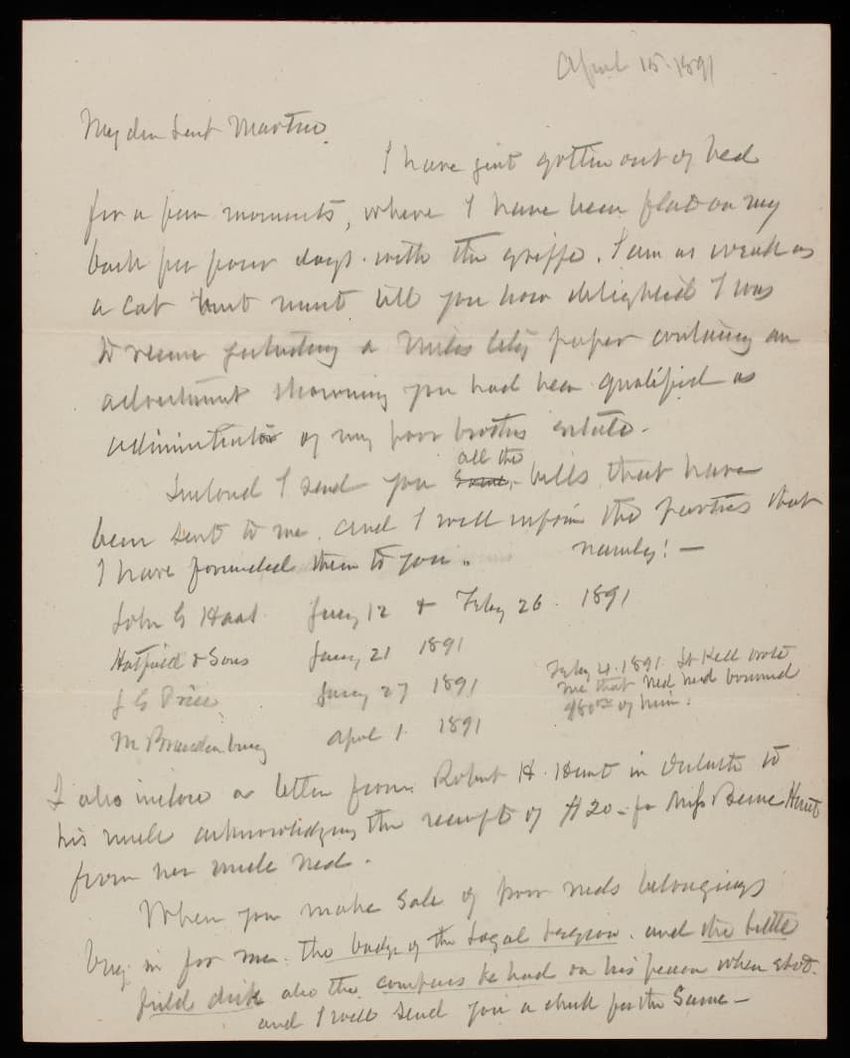 April 15. 1891
My dear Lieut Marttin.
I have just gotten out of bed
for a few moments, where I have been flat on my
back for four days. with the grippe. I am as weak as
a cat but must tell you how delighted I was
to receive yesterday a Miles City paper containing an
advertisement showing you had been qualified as
administrator of my poor brothers estate.
Inclosed I send you some, all the bills that have
been sent to me. and I will inform the parties that
I have forwarded them to you. namely: —
John G Haas Jany 12 & Feby 26. 1891
Hatfield & Sons Jany 21 1891
J G Price Jany 27 1891
Feby 4. 1891. Lt Kell wrote
me that Ned had borrowed
of him.
M Brandenburg April 1. 1891
I also inclose a letter from Robert H. Hunt in Duluth to
his uncle acknowledging the receipt of $20 - for Miss Hunt
from her uncle Ned.
When you make sale of poor Neds belongings
buy in for me. the badge of the Loyal Legion. and the little
field desk also the compass he had on his person when shot.
and I will send you a check for the same —